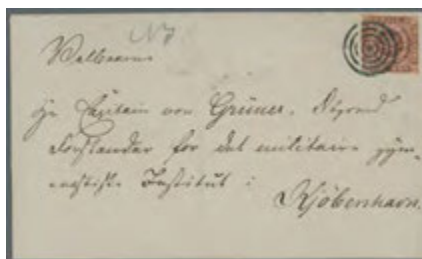 Velbaarne
Hr Capitain von Grüner,
Forstander for det militaire gym-
nastiske Institut i
Kjöbenhavn.